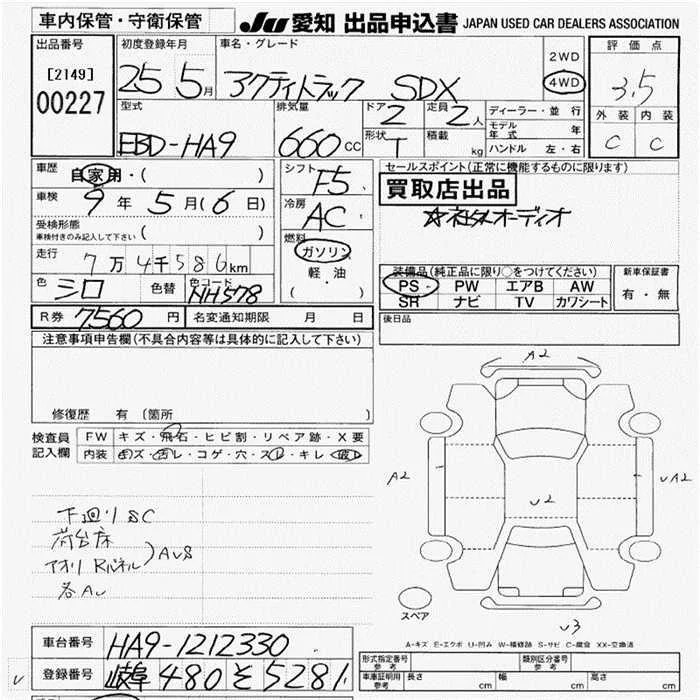 車内保管・守衛保管 JU 愛知 出品申込書 JAPAN USED CAR DEALERS ASSOCIATION
出品番号 [2149] 00227
初度登録年月 25 5月
車名・グレード アクティトラック SDX
2WD 4WD
評価点 3.5
外装 内装 C C
型式 EBD-HA9
排気量 660cc
ドア 2 形状 T
定員 2人 積載 kg
ディーラー・並行
モデル年式 年
ハンドル 左・右
車歴 自家用・( )
車検 9年 5月(6日)
受検形態 ( )
車検付きのみ記入して下さい
走行 7万4千586km
色 シロ 色替 色コード NH578
シフト F5
冷房 AC
燃料 ガソリン
軽・油
( )
セールスポイント(正常に機能するものに限ります)
買取店出品
☆社外オーディオ
装備品(純正品に限り○をつけてください)
PS PW エアB AW
SR ナビ TV カワシート
新車保証書 有・無
R券 7560円 名変通知期限 月 日
後日品
注意事項申告欄(不具合内容等は具体的に記入して下さい)
修復歴 有 (箇所 )
検査員記入欄
FW キズ・飛石・ヒビ割・リペア跡・X要
内装 キズ・汚レ・コゲ・穴・スレ・キレ・破レ
下廻りSC
荷台床
アオリ Rパネル )AUS
各AU
A2
A2
U2
UA2
U3
スペア
A-キズ E-エクボ U-凹み W-補修跡 S-サビ C-腐食 XX-交換済
車台番号 HA9-1212330
登録番号 岐阜 480 そ 5281
形式指定番号 参考 類別区分番号 参考
車庫証明用 参考 長さ cm 幅 cm 高さ cm